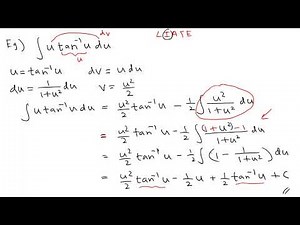 Eg) ∫ u tan⁻¹u du   LIATE
dv
u
u = tan⁻¹u   dv = u du
du = 1/(1+u²) du   v = u²/2
∫ u tan⁻¹u du = u²/2 tan⁻¹u − 1/2 ∫ u²/(1+u²) du
= u²/2 tan⁻¹u − 1/2 ∫ ((1+u²)−1)/(1+u²) du
= u²/2 tan⁻¹u − 1/2 ∫ (1 − 1/(1+u²)) du
= u²/2 tan⁻¹u − 1/2 u + 1/2 tan⁻¹u + C //